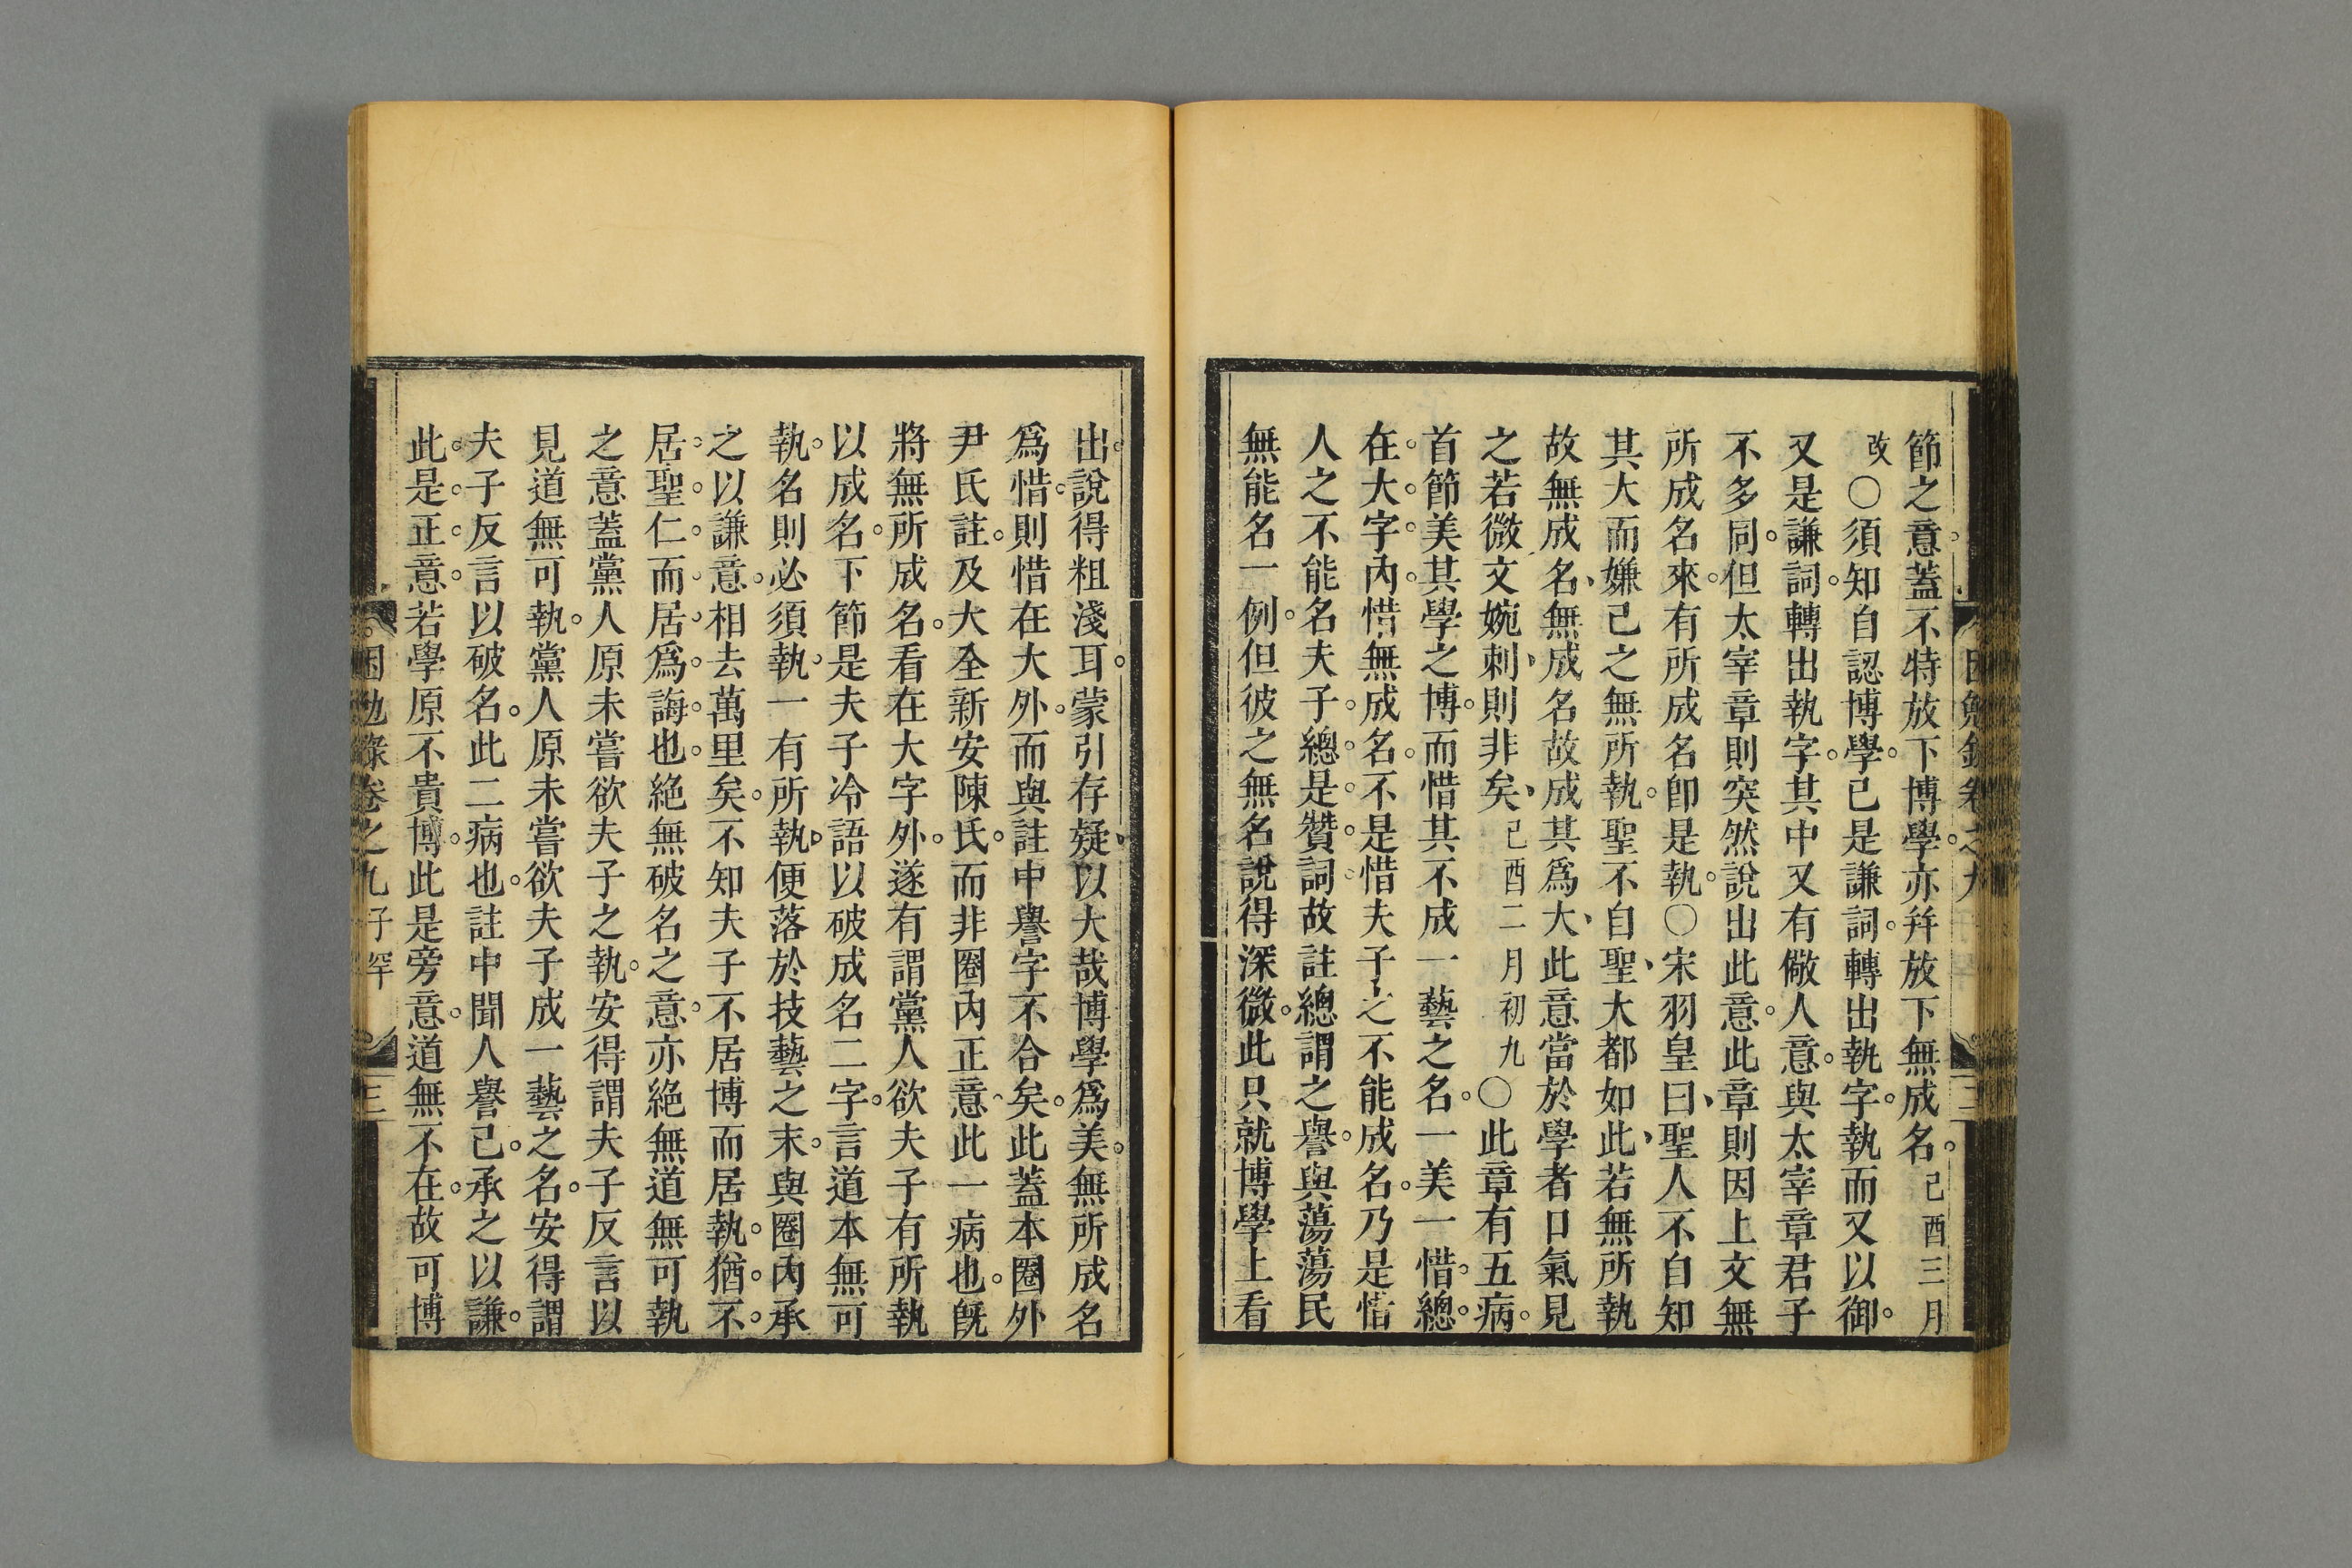 節之意。蓋不特放下博學。亦幷放下無成名。己酉三月
改〇須知自認博學。已是謙詞。轉出執字。執而又以御。
又是謙詞。轉出執字。其中又有儆人意。與太宰章君子
不多同。但太宰章則突然說出此意。此章則因上文無
所成名來。有所成名卽是執。〇宋羽皇曰、聖人不自知
其大而嫌己之無所執。聖不自聖、大都如此、若無所執
故無成名、無成名故成其爲大、此意當於學者口氣見
之若微文婉刺、則非矣、己酉二月初九〇此章有五病。
首節美其學之博。而惜其不成一藝之名。一美一惜。總。
在。大。字。內。惜無成名。不是惜夫子之不能成名。乃是惜
人之不能名夫子。總。是。贊。詞。故註總謂之譽。與蕩蕩民
無能名一例。但彼之無名說得深微。此只就博學上看
出。說得粗淺耳。蒙引存疑、以大哉博學爲美。無所成名
爲惜。則惜在大外。而與註中譽字不合矣。此蓋本圈外
尹氏註。及大全新安陳氏。而非圈內正意、此一病也。旣
將無所成名。看在大字外。遂有謂黨人欲夫子有所執
以成名。下節是夫子冷語以破成名二字。言道本無可
執。名則必須執。一有所執。便落於技藝之末。與圈內承
之以謙意。相去萬里矣。不知夫子不居博而居執。猶。不。
居。聖。仁。而。居。爲。誨。也。絕無破名之意。亦絕無道無可執
之意蓋黨人原未嘗欲夫子之執。安得謂夫子反言以
見道無可執。黨人原未嘗欲夫子成一藝之名。安得謂
夫子反言以破名。此二病也。註中聞人譽己。承之以謙。
此。是。正。意。若學原不貴博。此是旁意。道無不在。故可博
困勉錄卷之九 子罕 三